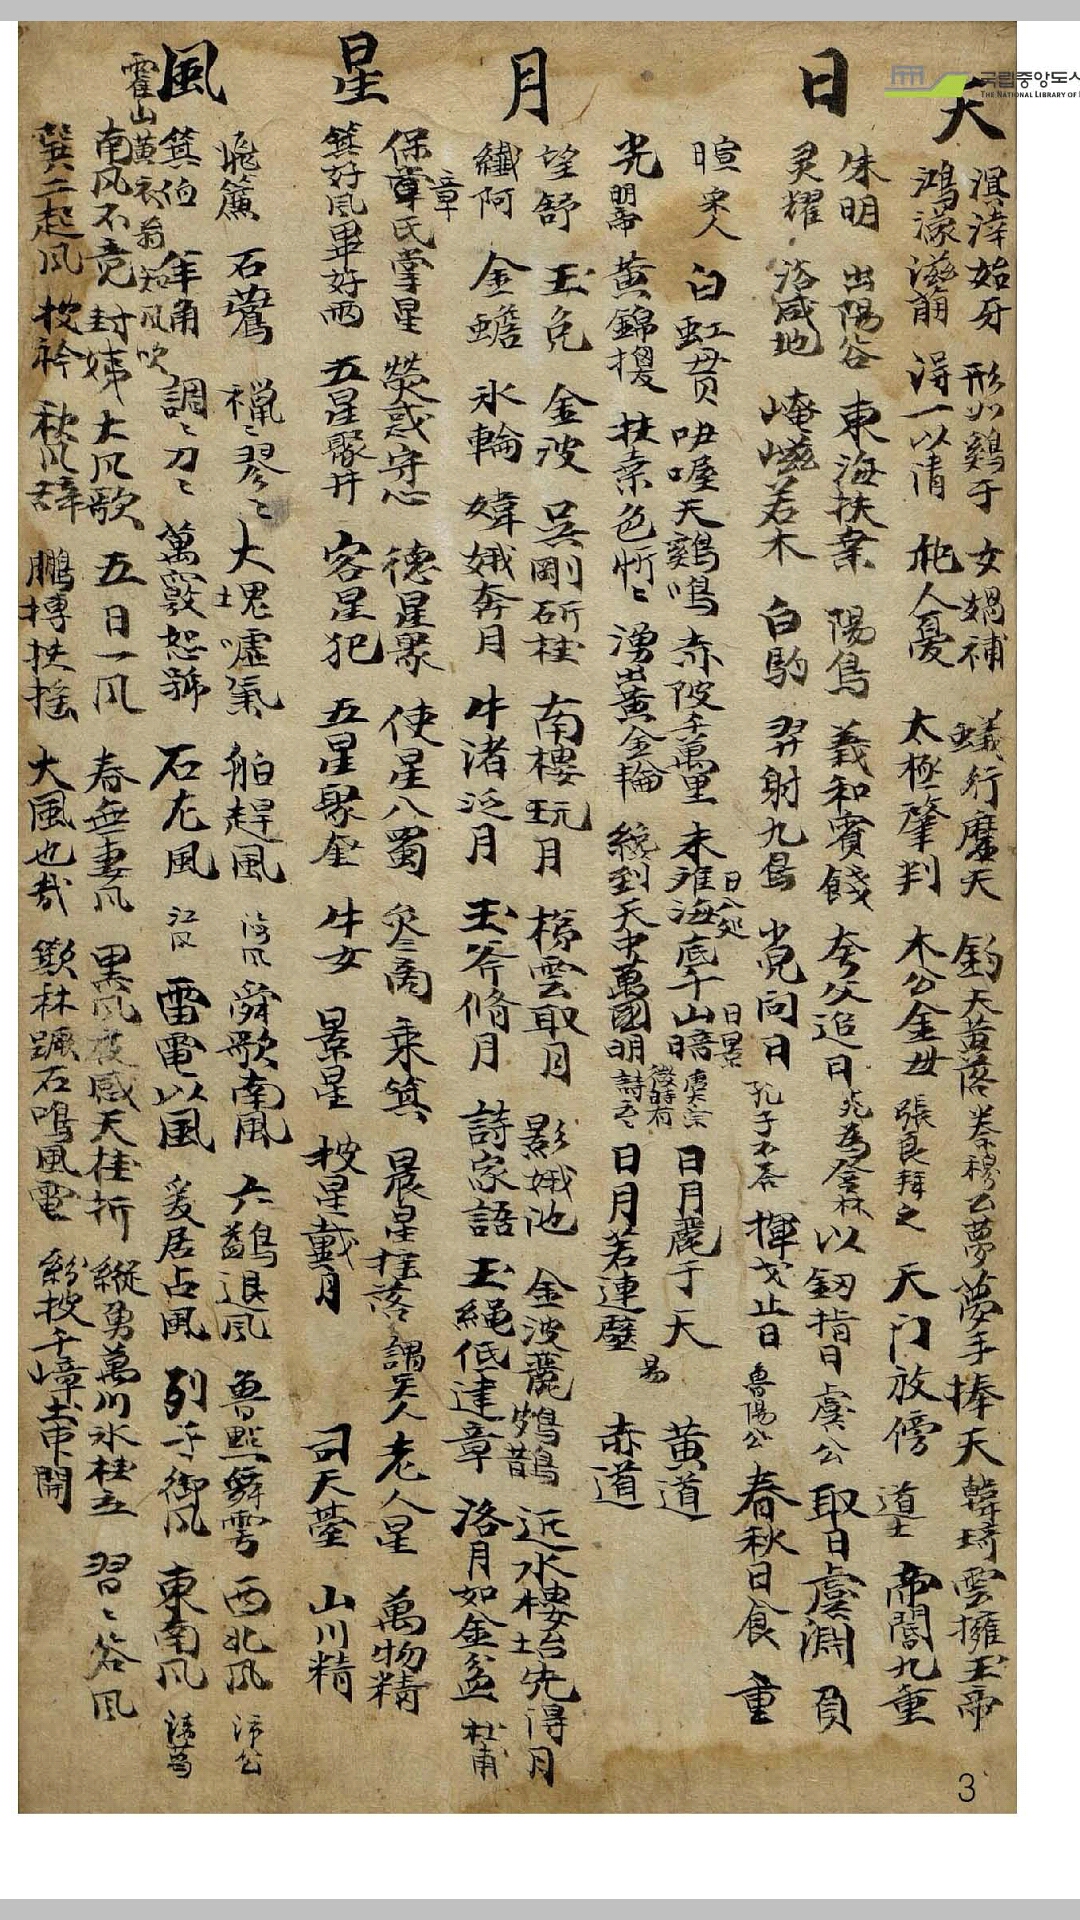 天
溟涬始牙 形如鷄子 女媧補 蟻行磨天 釣天黃落 秦穆公夢 夢手捧天 韓琦 雲擁玉帝
鴻濛滋萌 得一以清 杞人憂 太極肇判 木公金母 張良拜之 天门放傍 道士 帝閽九重
日
朱明 出陽谷 東海扶桒 陽烏 義和賓餞 夸父追日 死為鄧林 以釼指日 虞公 取日虞淵 負
灵耀 落咸地 崦嵫若木 白駒 羿射九烏 向日 孔子不答 揮戈止日 魯陽公 春秋日食 重
暄 白虹貫 咿喔天鷄鳴 赤陂千萬里 未離海底千山暗 日月麗于天 黄道
光 明帝 黄錦 扶桒色 湧出黄金輪 纔到天中萬國明 詩云 日月若連璧 易 赤道
月
望舒 玉兔 金波 吳剛斫桂 南樓玩月 梯雲取月 影娥池 金波麗鳷鵲 近水樓坮先得月
纖阿 金蟾 氷輪 姮娥奔月 牛渚泛月 玉斧脩月 詩家語 玉繩低達章 洛月如金盆 杜甫
星
保章氏掌星 熒惑守心 德星聚 使星入蜀 参商 乘箕 晨星搖落 謂天人 老人星 萬物精
箕好風畢好雨 五星聚井 客星犯 五星聚奎 牛女 景星 披星戴月 司天臺 山川精
風
飛簾 石鷰 大塊噓氣 舶趠風 舜歌南風 六鷁退風 魯點舞雩 西北风 沛公
箕伯 羊角 調〻刀〻 萬竅怒號 石尤風 江风 雷電以風 爰居占風 列子御风 東南风 諸葛
霍山黃衣翁知风吹
南风不竞 封姨 大风歌 五日一风 春無妻风 黒风夜感天柱折 縱勇萬川氷柱立 習〻谷风
巽二起风 披衿 秋风辞 鵬搏扶搖 大風也哉 歎林蹶石鳴風電 千嶂土束開
국립중앙도서
THE NATIONAL LIBRARY OF
3